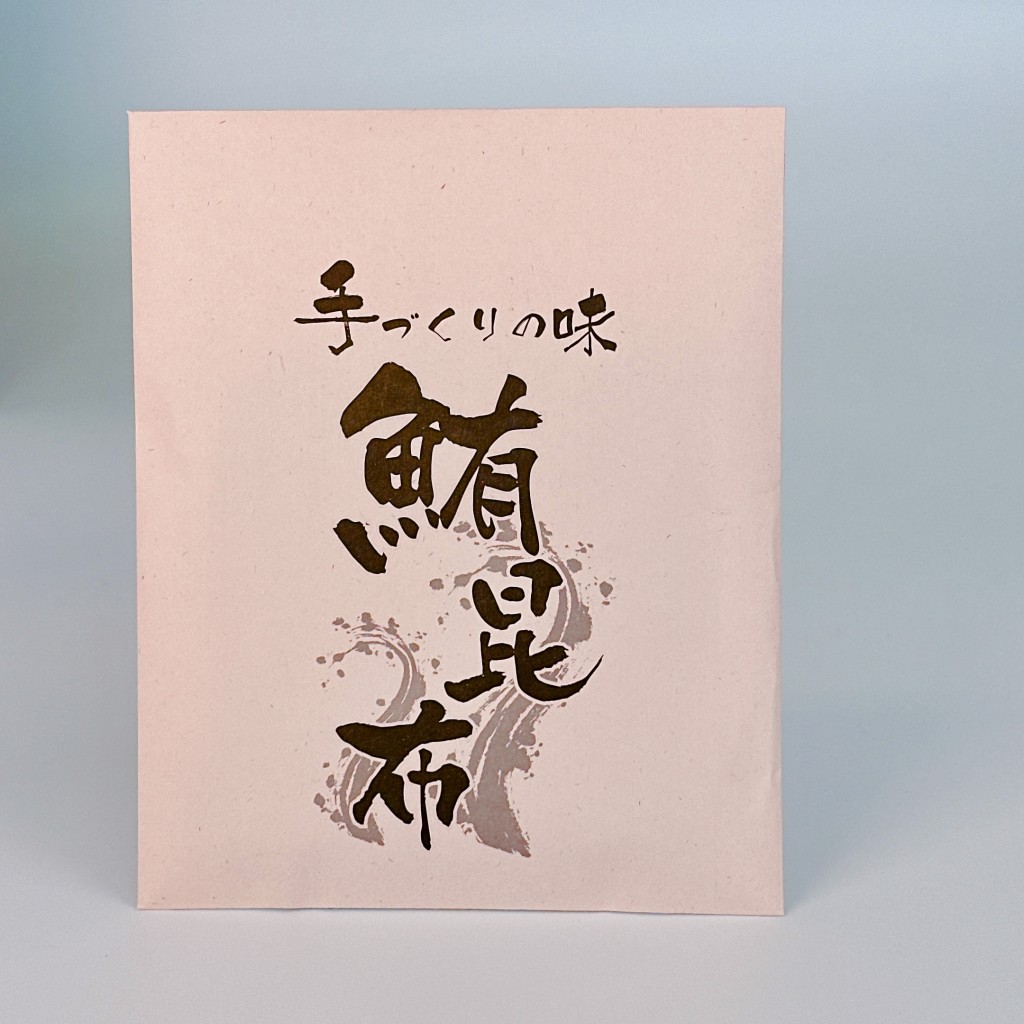 手づくりの味
鮪昆布